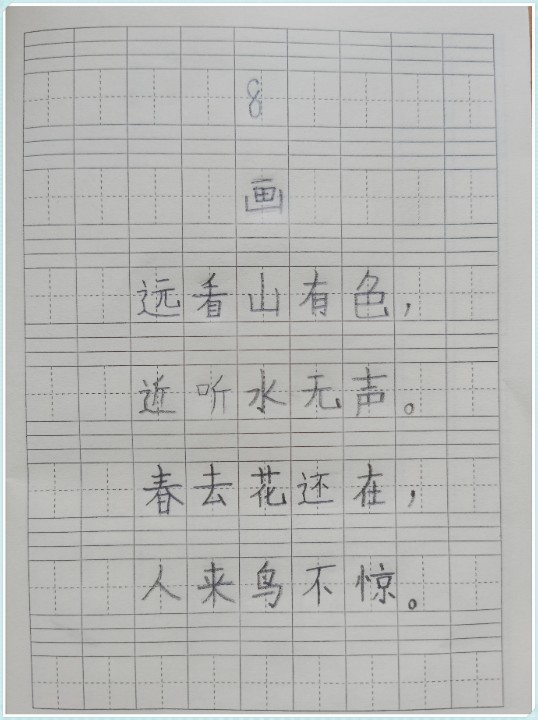 8
画
远看山有色，
近听水无声。
春去花还在，
人来鸟不惊。